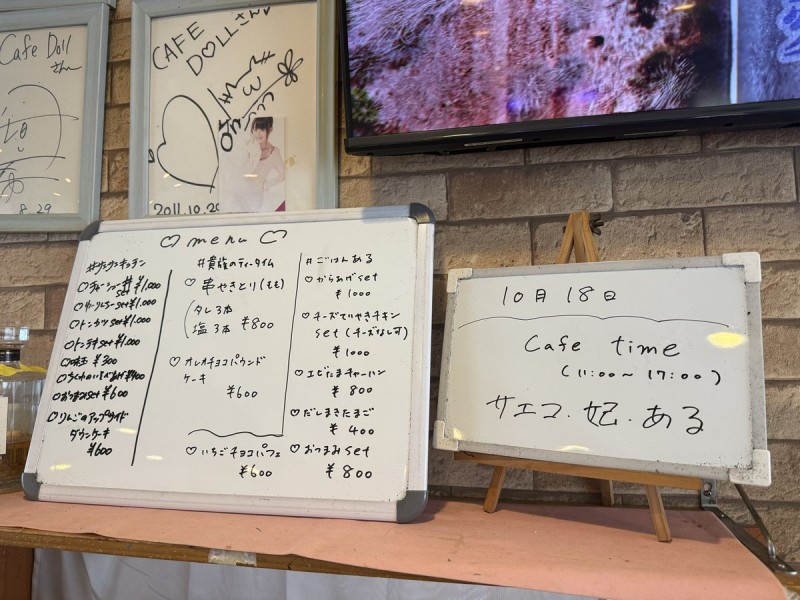 Cafe Doll
さんへ
8.29
CAFE
DOLLさん
2011.10.29
♡ menu ♡
♡チャーシュー丼
set ¥1,000
set ¥1,000
♡トンカツset ¥1,000
♡トンテキset ¥1,000
♡味玉 ¥300
♡おつまみset ¥600
♡りんごのアップサイド
ダウンケーキ
¥600
#貴族のティータイム
♡ 串やきとり(もも)
タレ 3本
塩 3本 ¥800
♡オレオチョコパウンド
ケーキ
¥600
♡いちごチョコパフェ
¥600
#ごはんある
♡からあげset
¥1000
♡チーズていやきチキン
set (チーズなし可)
¥1000
♡エビたまチャーハン
¥800
♡だしまきたまご
¥400
♡おつまみset
¥800
10月 18日
Cafe time
(11:00~17:00)
サエコ・妃・ある